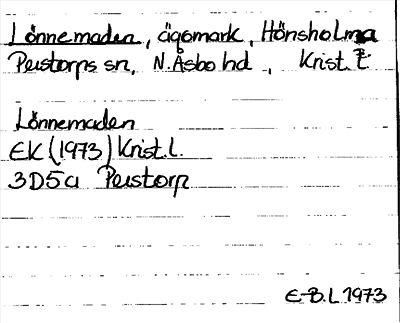 Lönnemaden, ägomark, Hönsholma
Perstorps sn, N. Åsbo hd, Krist. l.
Lönnemaden
EK (1973) Krist. l.
3D5a Perstorp
E-B.L 1973